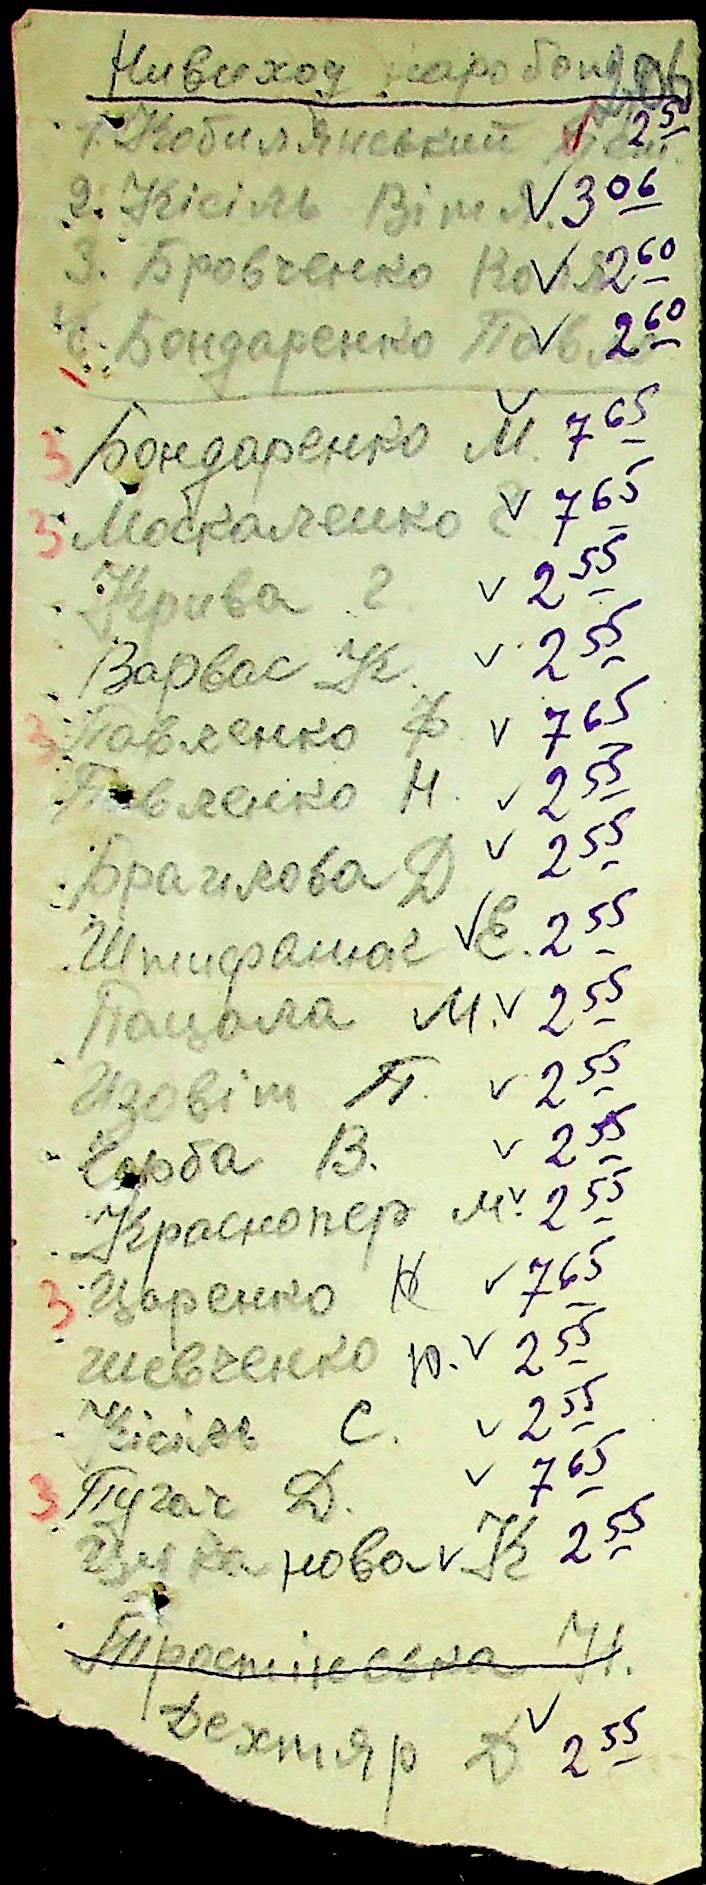 Нивиход наробонд
1. Кобилянський 2 5
2. Кісіль Віт 3 06
3. Бровченко Коля 2 60
4. Бондаренко Павло 2 60
3 Бондаренко М. 7 65
3 Москаленко 7 65
Крива Г 2 55
Варвас К. 2 55
3 Павленко Ф. 7 65
Павленко Н. 2 55
Брагилова Д 2 55
Е. 2 55
Пацола М. 2 55
Изовіт П. 2 55
В. 2 55
Краснопер М. 2 55
3 Царенко 7 65
Шевченко Ю. 2 55
Кісіль С. 2 55
3 Пугач Д. 7 65
К 2 55
Тростінська Н.
Дехтяр Д 2 55